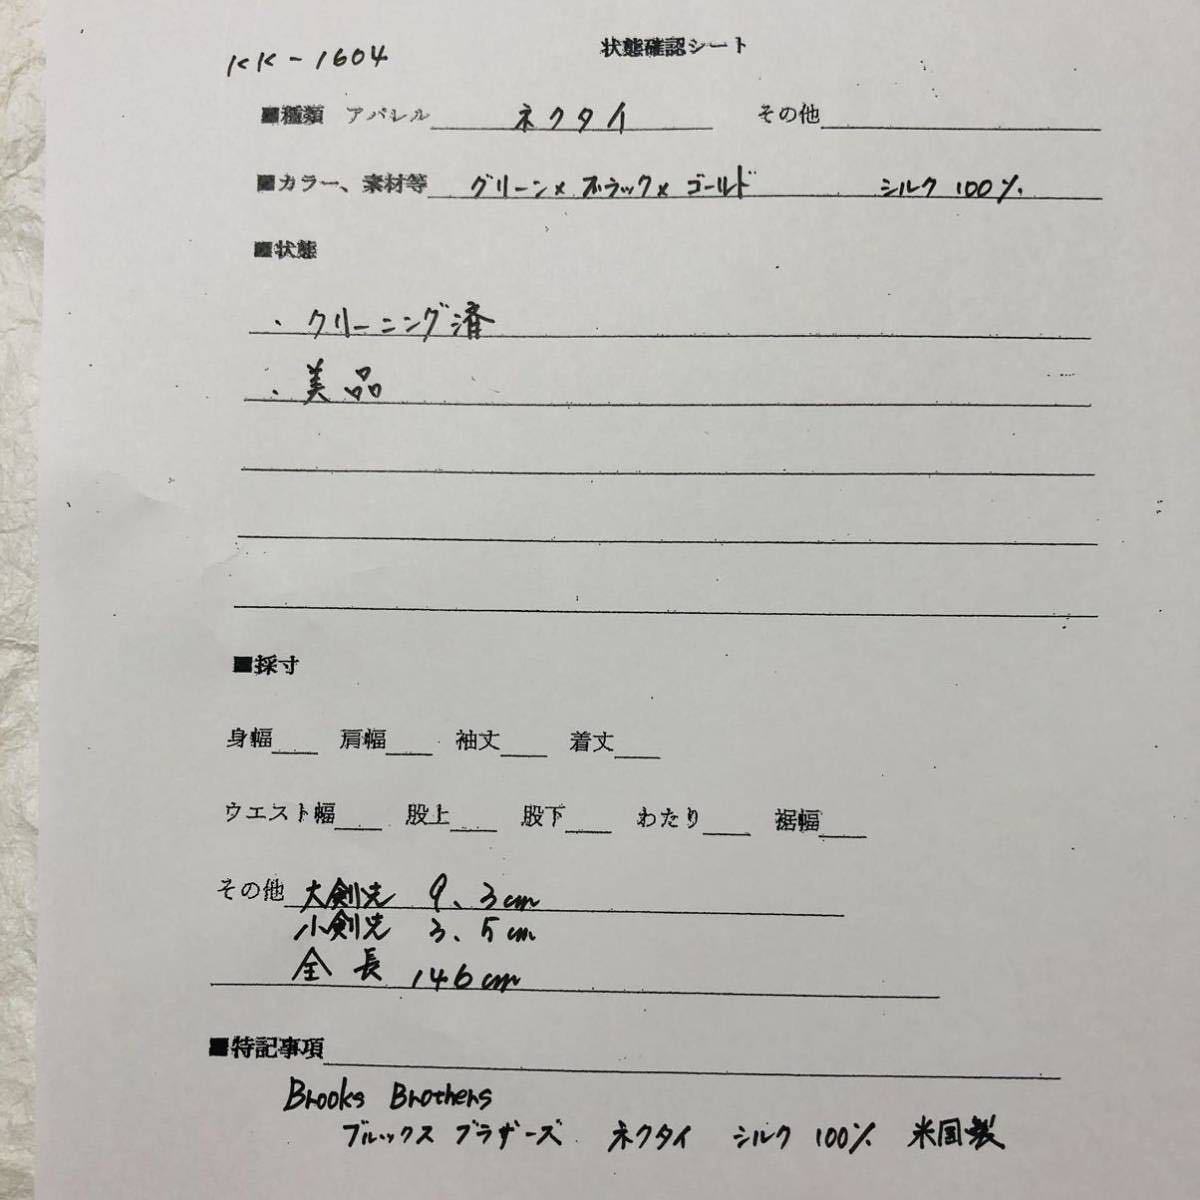 KK-1604
状態確認シート
■種類 アパレル ネクタイ その他
■カラー、素材等 グリーン×ブラック×ゴールド シルク100%
■状態
・クリーニング済
・美品
■採寸
身幅 肩幅 袖丈 着丈
ウエスト幅 股上 股下 わたり 裾幅
その他 大剣先 9.3cm
小剣先 3.5cm
全長 146cm
■特記事項
Brooks Brothers
ブルックスブラザーズ ネクタイ シルク100% 米国製